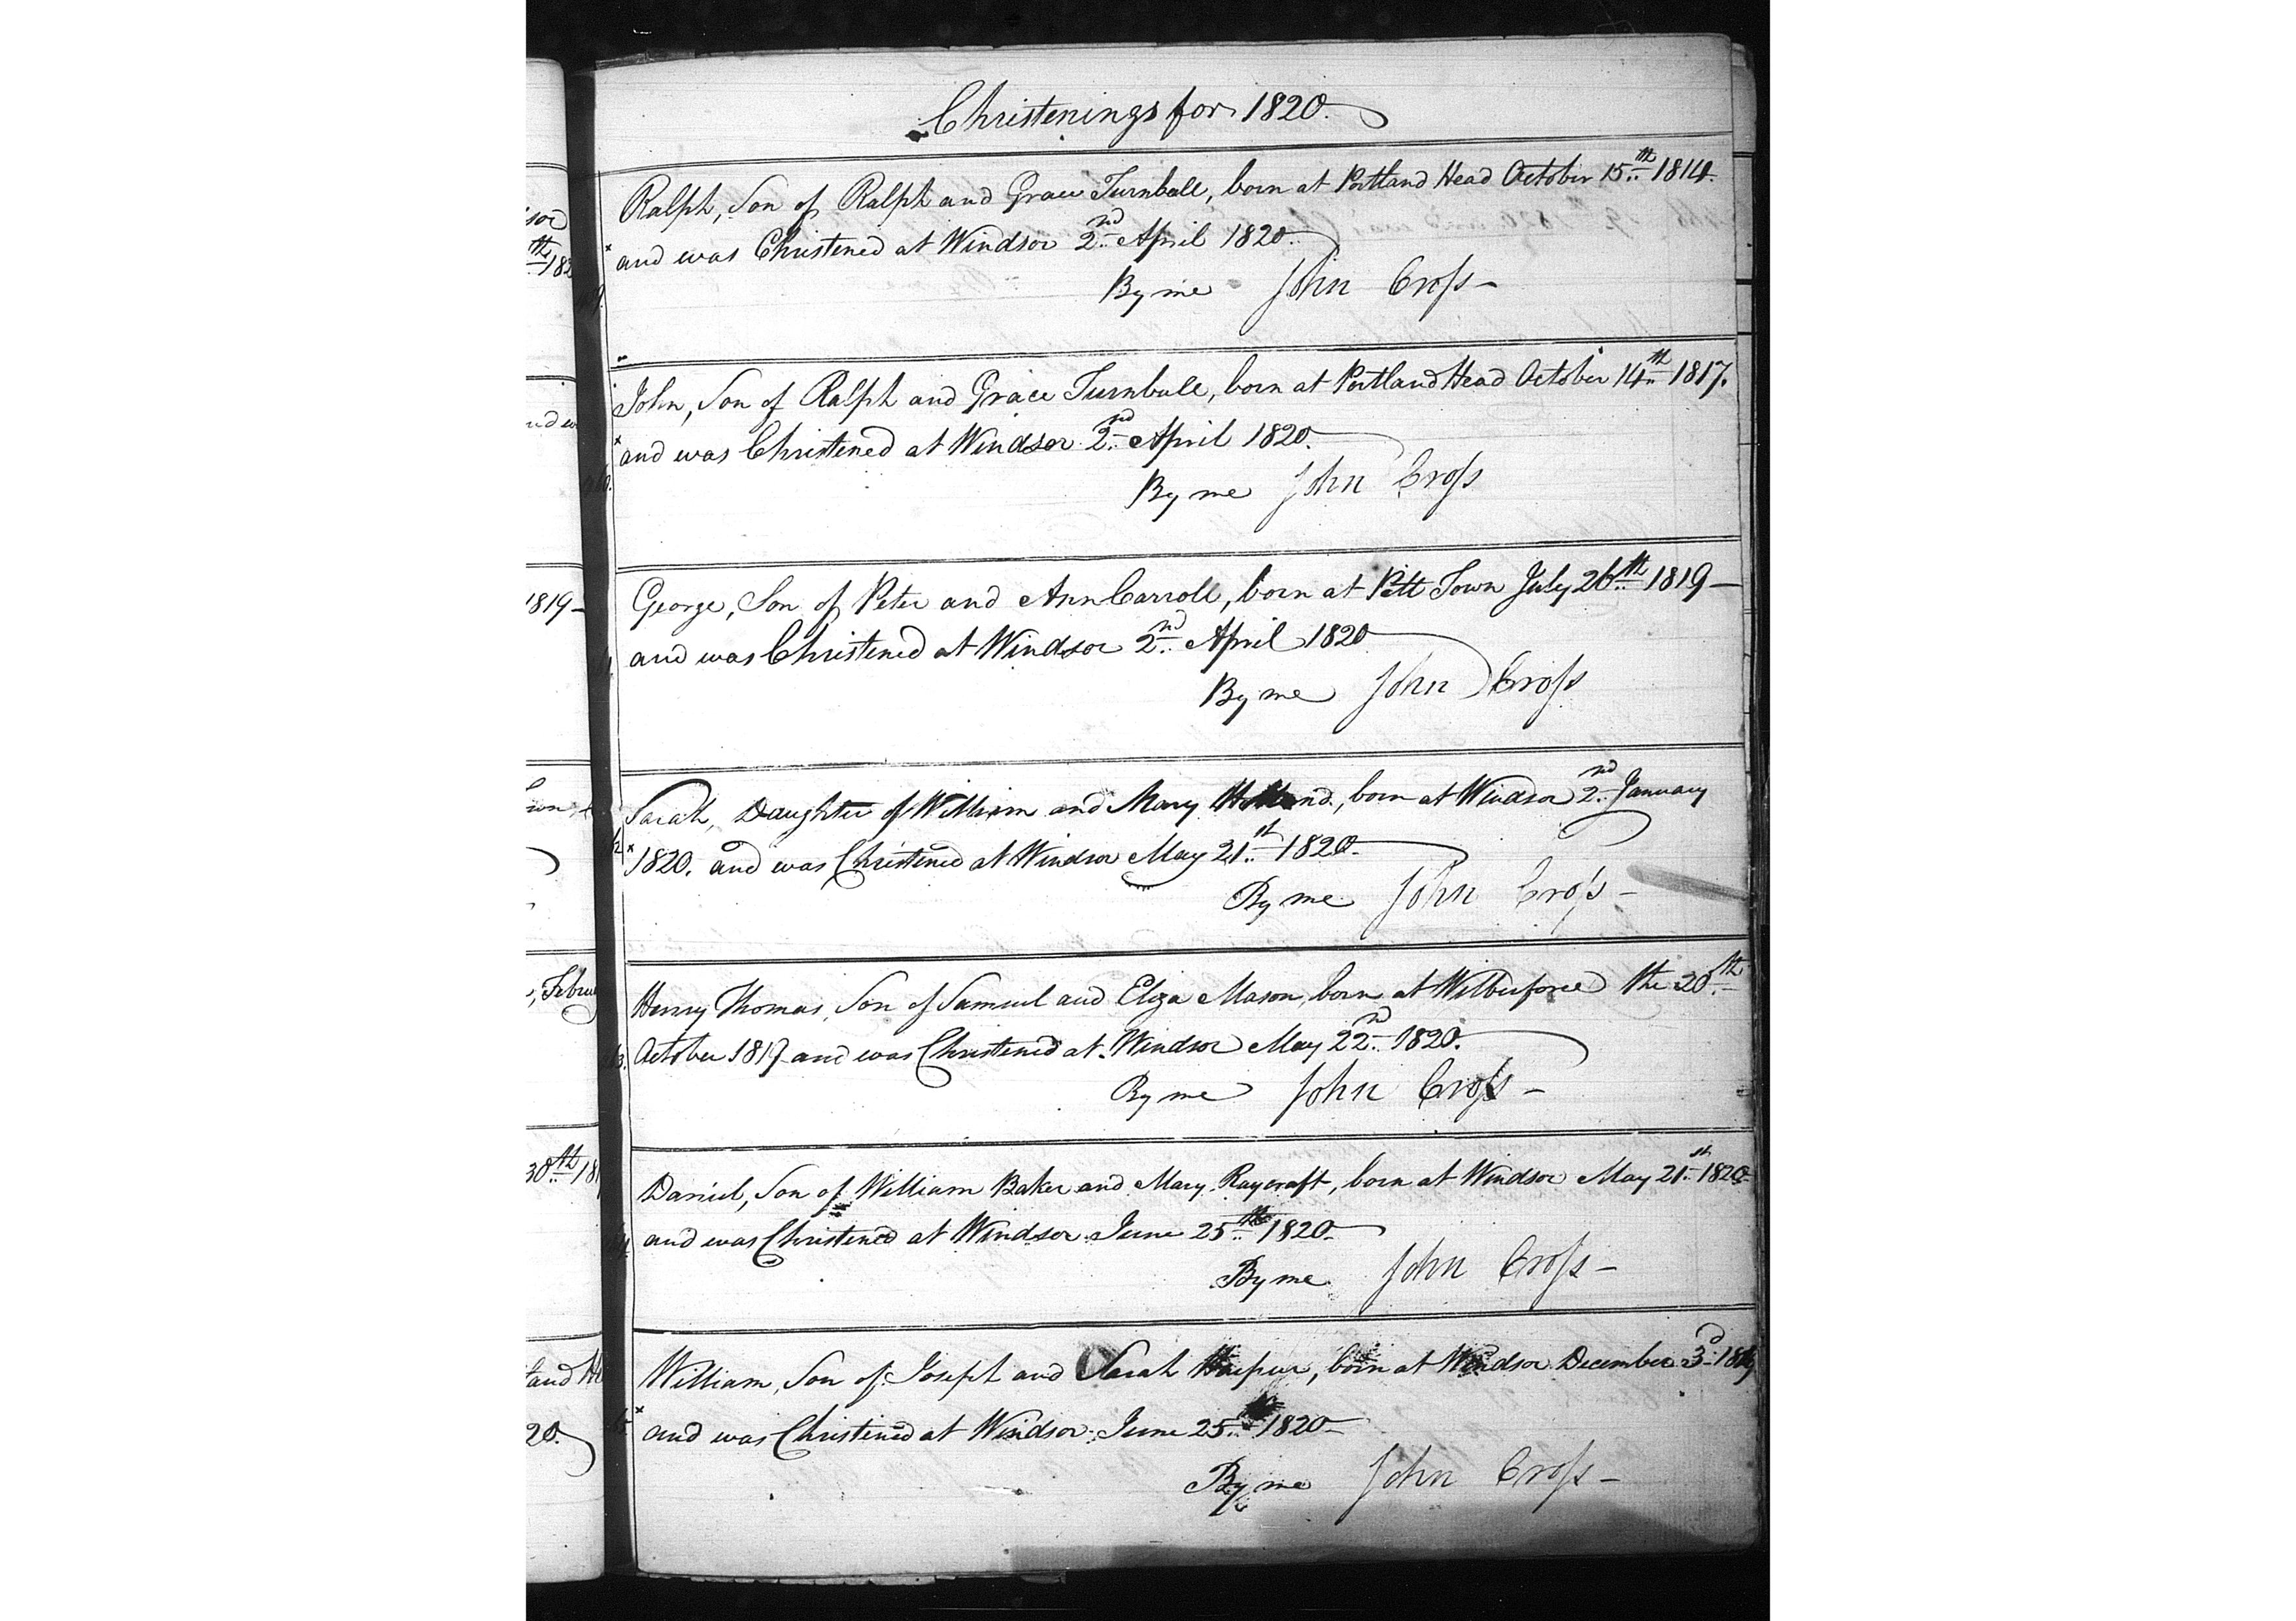 Christenings for 1820.
Ralph, Son of Ralph and Grace Turnbull, born at Portland Head October 15th 1814.
and was Christened at Windsor 2nd April 1820.
By me John Cross
John, Son of Ralph and Grace Turnbull, born at Portland Head October 14th 1817.
and was Christened at Windsor 2nd April 1820.
By me John Cross
George, Son of Peter and Ann Carroll, born at Pitt Town July 26th 1819
and was Christened at Windsor 2nd April 1820
By me John Cross
Sarah, Daughter of William and Mary Holland, born at Windsor 2nd January
1820. and was Christened at Windsor May 21st 1820.
By me John Cross
Henry Thomas, Son of Samuel and Eliza Mason, born at Wilberforce the 20th
October 1817 and was Christened at Windsor May 22nd 1820.
By me John Cross
Daniel, Son of William Baker and Mary Raycraft, born at Windsor May 21st 1820
and was Christened at Windsor June 25th 1820
By me John Cross
William, Son of Joseph and Sarah Harpur, born at Windsor December 3d
and was Christened at Windsor June 25th 1820
By me John Cross